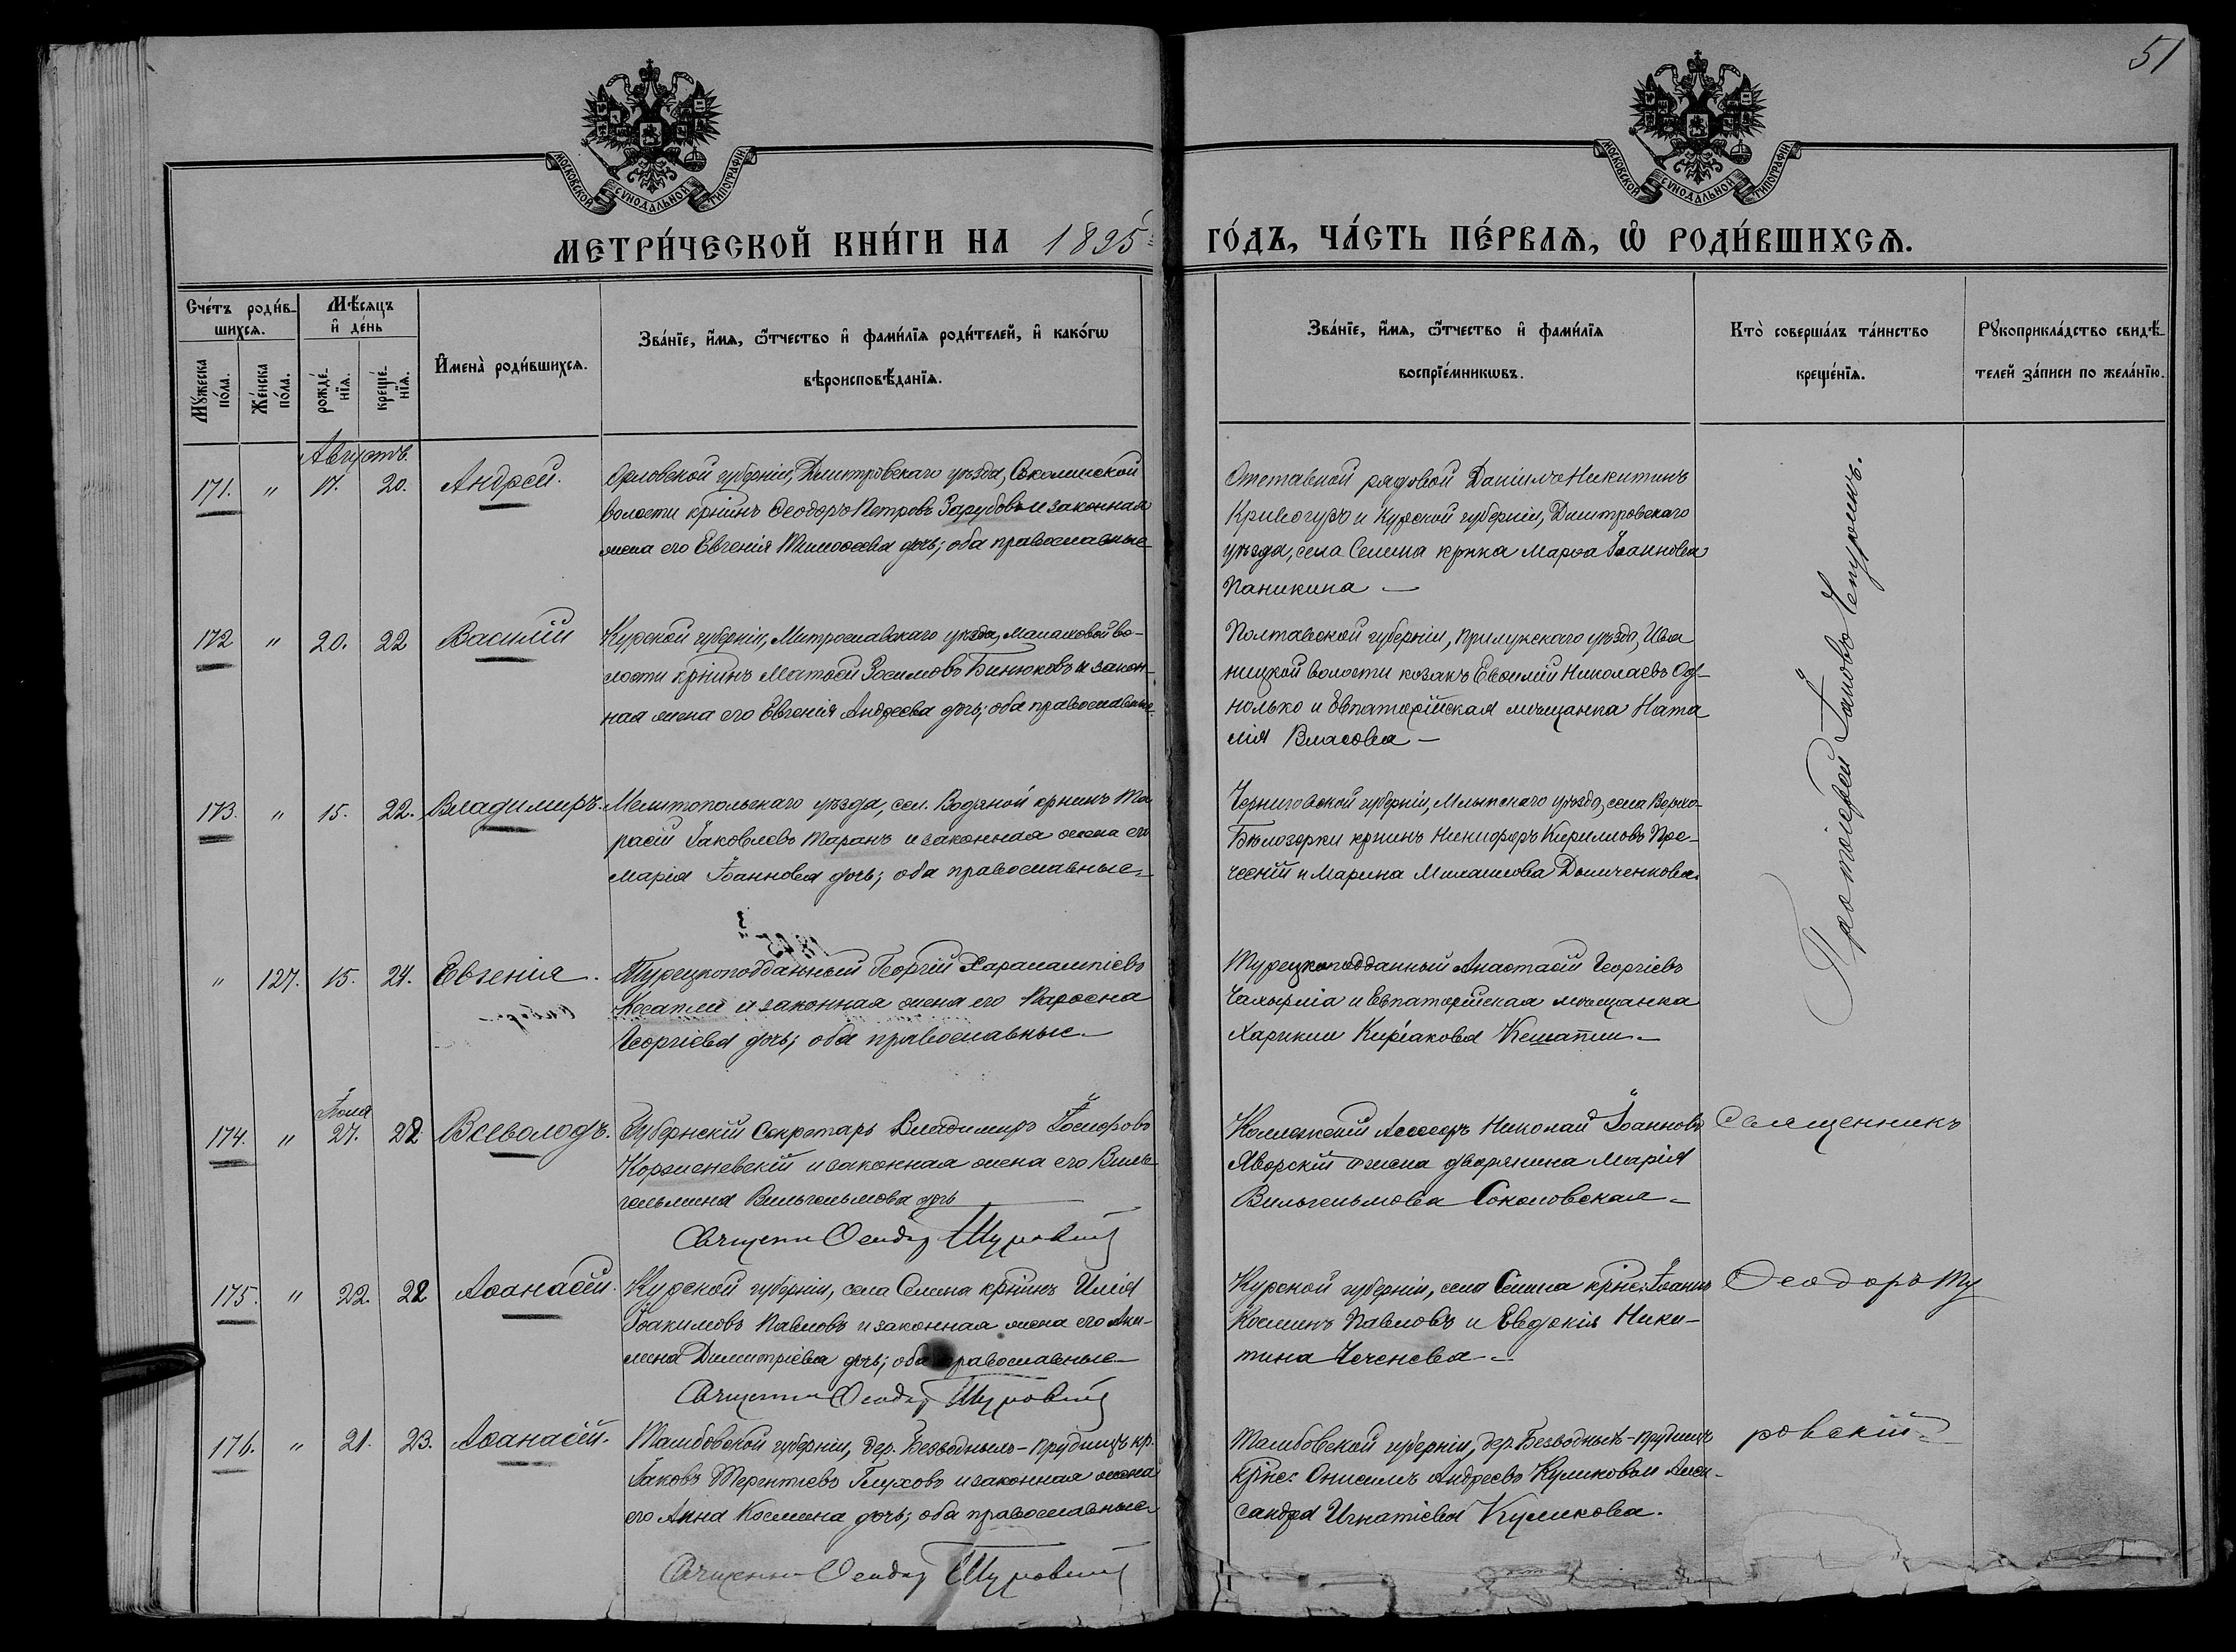 51
МОСКОВСКОЙ СѴНОДАЛЬНОЙ ТИПОГРАФІИ
МОСКОВСКОЙ СѴНОДАЛЬНОЙ ТИПОГРАФІИ
МЕТРИ́ЧЕСКОЙ КНИ́ГИ НА 1895
ГО́ДЪ, ЧА́СТЬ ПЕ́РВАѦ, Ѡ РОДИ́ВШИХСѦ.
Сче́тъ роди́в-
шихсѧ.
Мꙋ́жеска по́ла.
Же́нска по́ла.
Мѣ́сѧцъ
и҆ де́нь
рожде́-
нїѧ.
креще́-
нїѧ.
И҆мена̀ роди́вшихсѧ.
Зва́нїе, и҆́мѧ, ѻ҆́тчество и҆ фами́лїѧ роди́телей, и҆ како́гѡ
вѣроисповѣ́данїѧ.
Зва́нїе, и҆́мѧ, ѻ҆́тчество и҆ фами́лїѧ
воспрїе́мникѡвъ.
Кто̀ соверша́лъ та́инство
креще́нїѧ.
Рꙋкоприкла́дство свидѣ́-
телей за́писи по жела́нїю.
Августъ.
171. " 17. 20. Андрей.
Орловской губерніи, Дмитровскаго уѣзда,
волости крнинъ Ѳеодоръ Петровъ Зарубовъ и законная
жена его Евгенія Тимоѳеева дочь; оба православные
Отставной рядовой Даніилъ Никитинъ
и Курской губерніи, Дмитровскаго
уѣзда, села Селина крнка Марѳа Іоаннова
Паникина —
Протоіерей Іаковъ Чепуринъ.
172 " 20. 22 Василій
Курской губерніи, уѣзда, во-
лости крнинъ Матѳей Зосимовъ Бинюковъ и закон-
ная жена его Евгенія Андреева дочь; оба православные.
Полтавской губерніи, Прилукскаго уѣзда, Ива
ницкой волости козакъ Евѳимій Николаевъ Од-
нолько и Евпаторійская мѣщанка Ната
лія Власова —
173. " 15. 22. Владимиръ.
Мелитопольскаго уѣзда, сел. Водяной крнинъ Та-
расій Іаковлевъ Таранъ и законная жена его
Марія Іоаннова дочь; оба православные
Черниговской губерніи, уѣзда, села
крнинъ Никифоръ Кирилловъ
и Марина Домченкова.
" 127. 15. 24. Евгенія.
Турецкоподданный Георгій Харалампіевъ
и законная жена его Парѳена
Георгіева дочь; оба православные. —
Турецкоподданный Анастасій Георгіевъ
и Евпаторійская мѣщанка
Кирiакова —
174. " Іюля 27. 22 Всеволодъ.
Губернскій Секретарь Владимиръ Іосифовъ
Корженевскій и законная жена его Виль-
гельмина Вильгельмова дочь
Священн Ѳеодор Туровскій
Коллежскій Ассесоръ Николай Іоанновъ
Яворскій и жена дворянина Марія
Вильгельмова Соколовская —
Священникъ
175. " 22. 22 Аѳанасій.
Курской губерніи, села Селина крнинъ Илія
Іоакимовъ Павловъ и законная жена его Аки-
лина Димитріева дочь; оба православные. —
Священн Ѳеодор Туровскій
Курской губерніи, села Селина крне: Іоаннъ
Косминъ Павловъ и Евдокія Ники-
тина Чеченева —
Ѳеодоръ Ту
176. " 21. 23. Аѳанасій.
Тамбовской губерніи, дер. Безводныхъ-Прудищъ кр.
Іаковъ Терентіевъ Глуховъ и законная жена
его Анна Космина дочь; оба православные
Священн Ѳеодор Туровскій
Тамбовской губерніи, дер. Безводныхъ-Прудищъ
крне: Онисимъ Андреевъ Куликовъ и Алек-
сандра Игнатіева Куликова.
ровскій